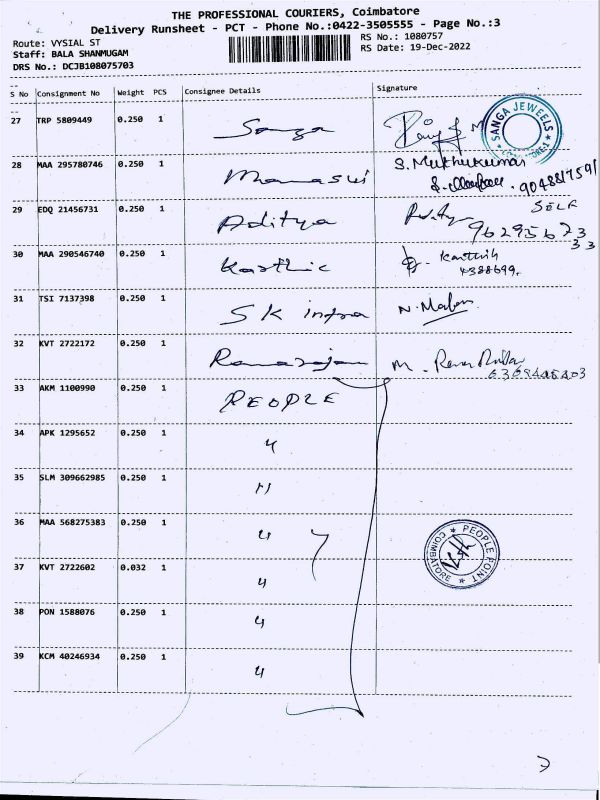 THE PROFESSIONAL COURIERS, Coimbatore
Delivery Runsheet - PCT - Phone No.:0422-3505555 - Page No.:3
Route: VYSIAL ST
RS No.: 1080757
Staff: BALA SHANMUGAM
RS Date: 19-Dec-2022
DRS No.: DCJB108075703
S No Consignment No Weight PCS Consignee Details Signature
27 TRP 5809449 0.250 1 Sanga
SANGA JEWELS
28 MAA 295780746 0.250 1 Manasvi S. Muthukumar
9048817591
29 EDQ 21456731 0.250 1 Aditya Aditya SELF
9629556733
30 MAA 290546740 0.250 1 Karthic Karthik
4388699.
31 TSI 7137398 0.250 1 SK infra
32 KVT 2722172 0.250 1 Ramarajan
33 AKM 1100990 0.250 1 PEOPLE
34 APK 1295652 0.250 1 "
35 SLM 309662985 0.250 1 "
36 MAA 568275383 0.250 1 "
PEOPLE POINT
COIMBATORE
37 KVT 2722602 0.032 1 "
38 PON 1588076 0.250 1 "
39 KCM 40246934 0.250 1 "